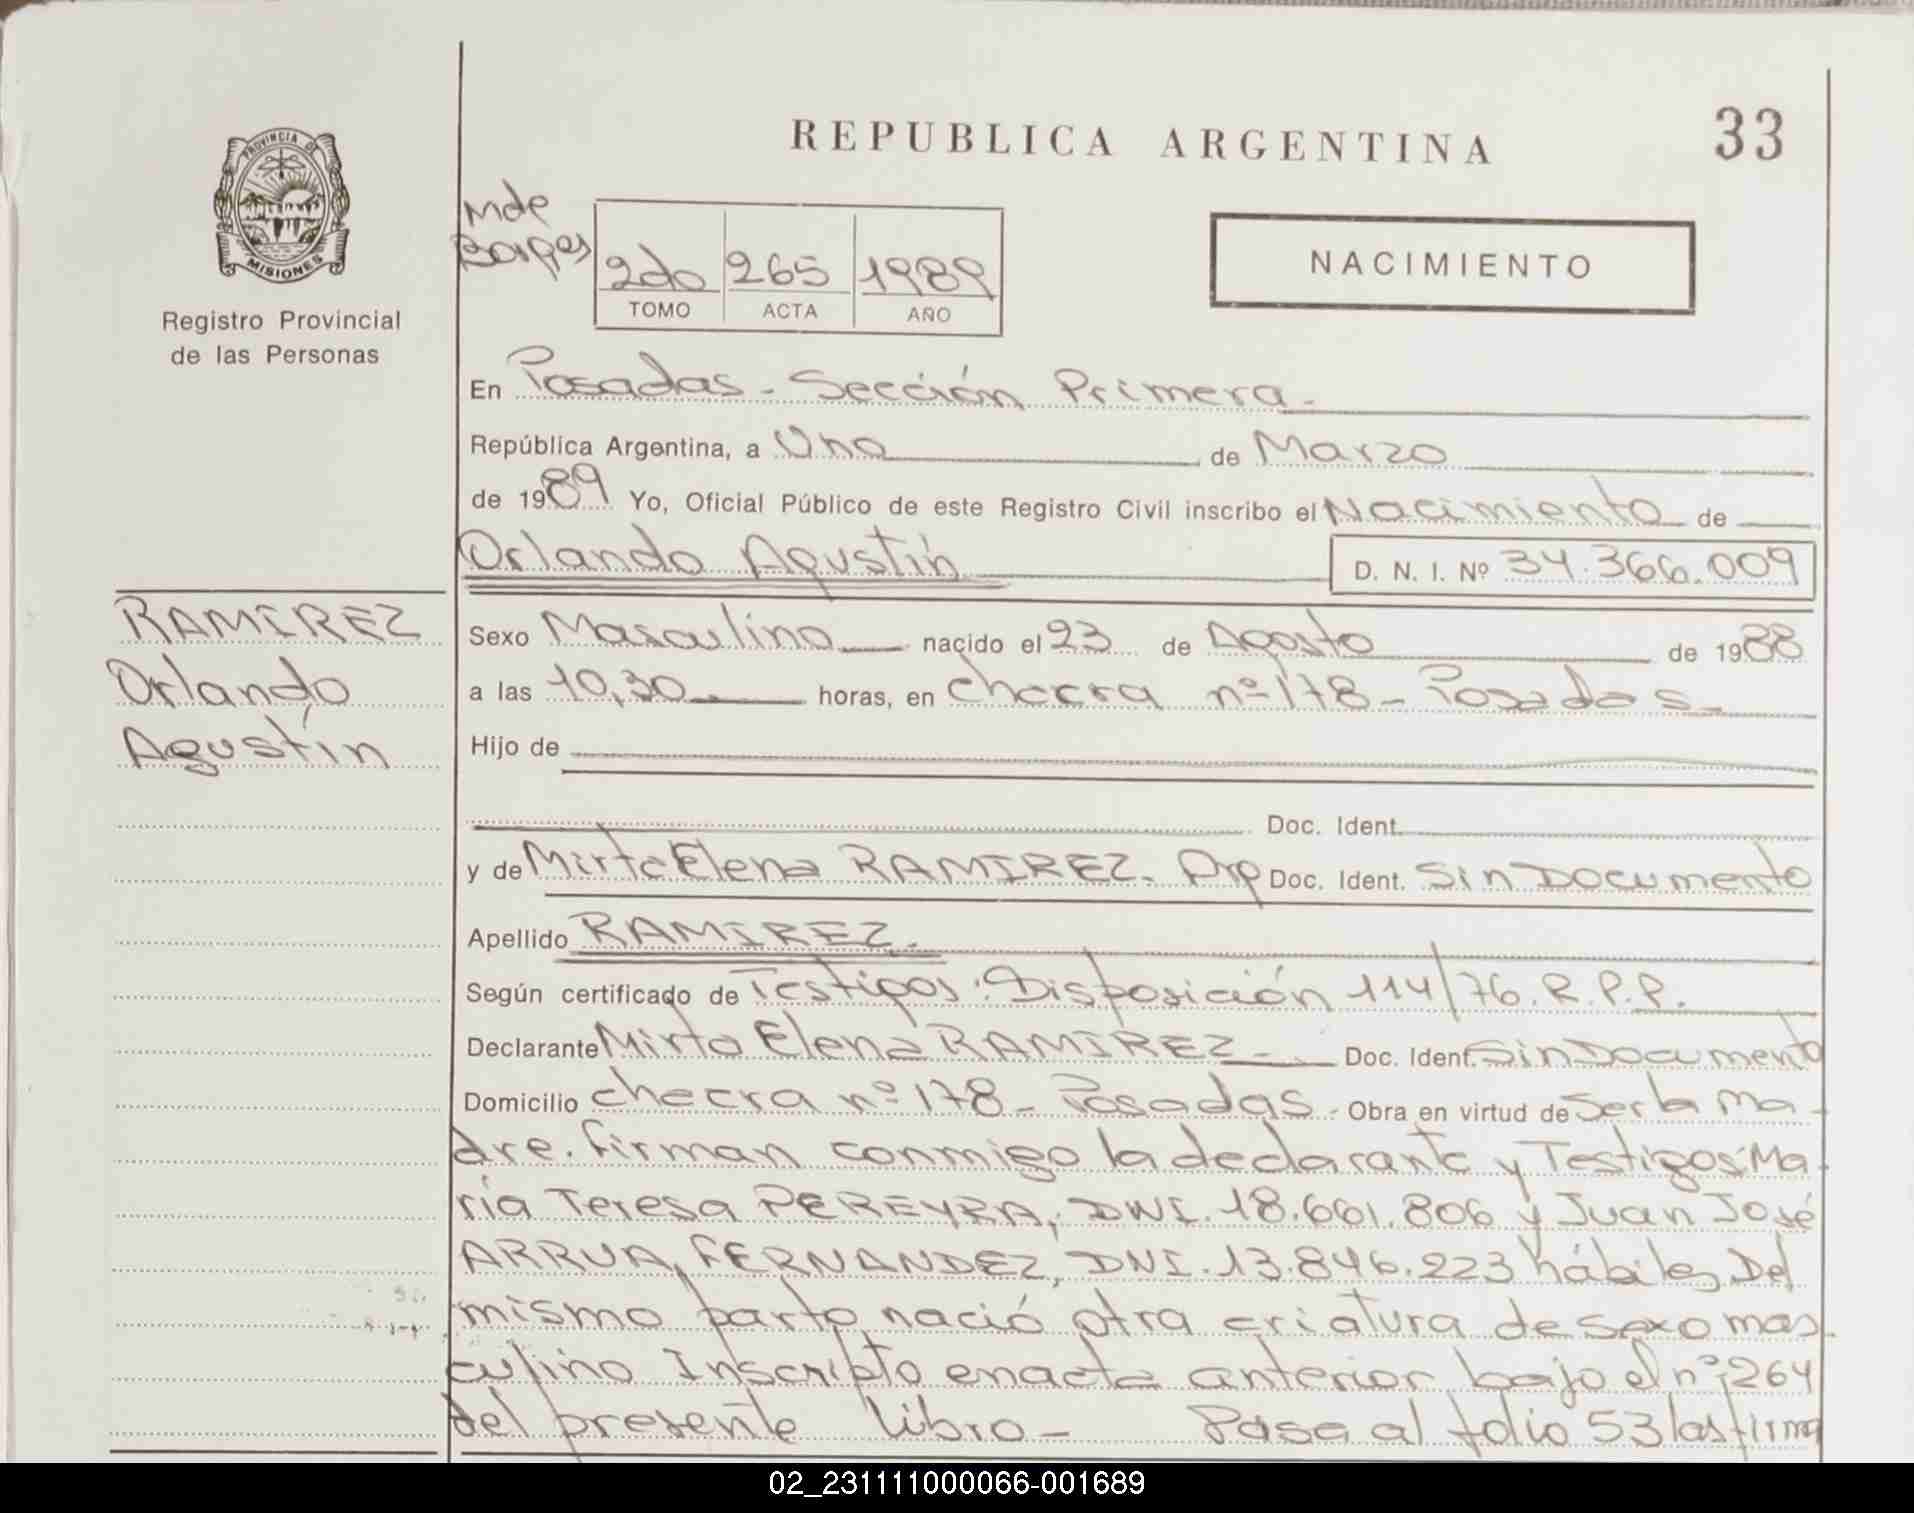 REPUBLICA ARGENTINA
33
PROVINCIA DE
MISIONES
Registro Provincial
de las Personas
Mde
2do 265 1989
TOMO ACTA AÑO
NACIMIENTO
En Posadas - Sección Primera -
República Argentina, a Uno de Marzo
de 1989 Yo, Oficial Público de este Registro Civil inscribo el Nacimiento de
Orlando Agustín
D. N. I. Nº 34.366.009
RAMIREZ
Orlando
Agustín
Sexo Masculino nacido el 23 de Agosto de 1988
a las 10,30 horas, en Checra nº 178 - Posadas -
Hijo de
Doc. Ident.
y de Mirta Elena RAMIREZ. Arg Doc. Ident. Sin Documento
Apellido RAMIREZ.
Según certificado de Testigos: Disposición 114/76. R.P.P.
Declarante Mirta Elena RAMIREZ - Doc. Ident. Sin Documento
Domicilio checra nº 178 - Posadas - Obra en virtud de Ser la Ma-
dre. firman conmigo la declarante y Testigos: Ma-
ría Teresa PEREYRA, DNI. 18.661.806 y Juan José
ARRUA FERNANDEZ, DNI. 13.846.223 hábiles. Del
mismo parto nació otra criatura de sexo mas-
culino Inscripto en acta anterior bajo el nº 264
del presente libro - Pasa al folio 53 las firma
02_231111000066-001689